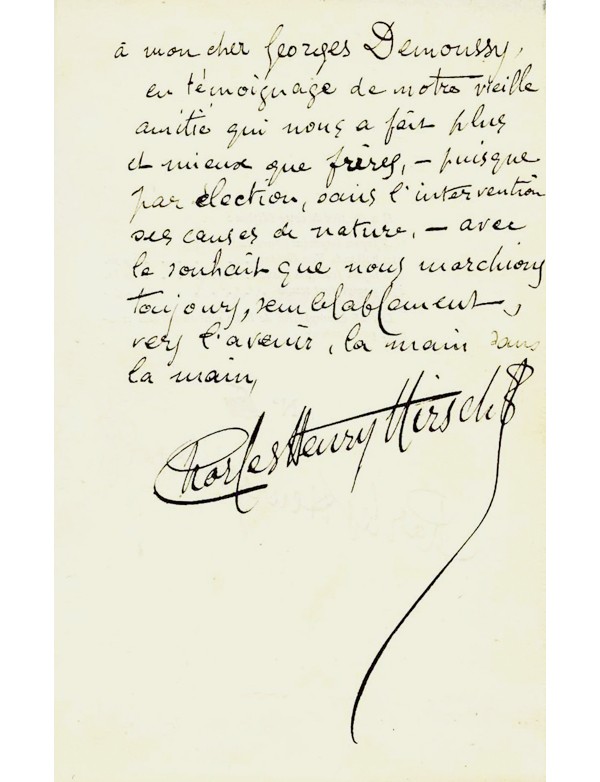 à mon cher Georges Demoussy,
en témoignage de notre vieille
amitié qui nous a fait plus
et mieux que frères, – puisque
par élection, sans l'intervention
des causes de nature, – avec
le souhait que nous marchions
toujours, semblablement,
vers l'avenir, la main dans
la main,
Charles Henry Hirsch